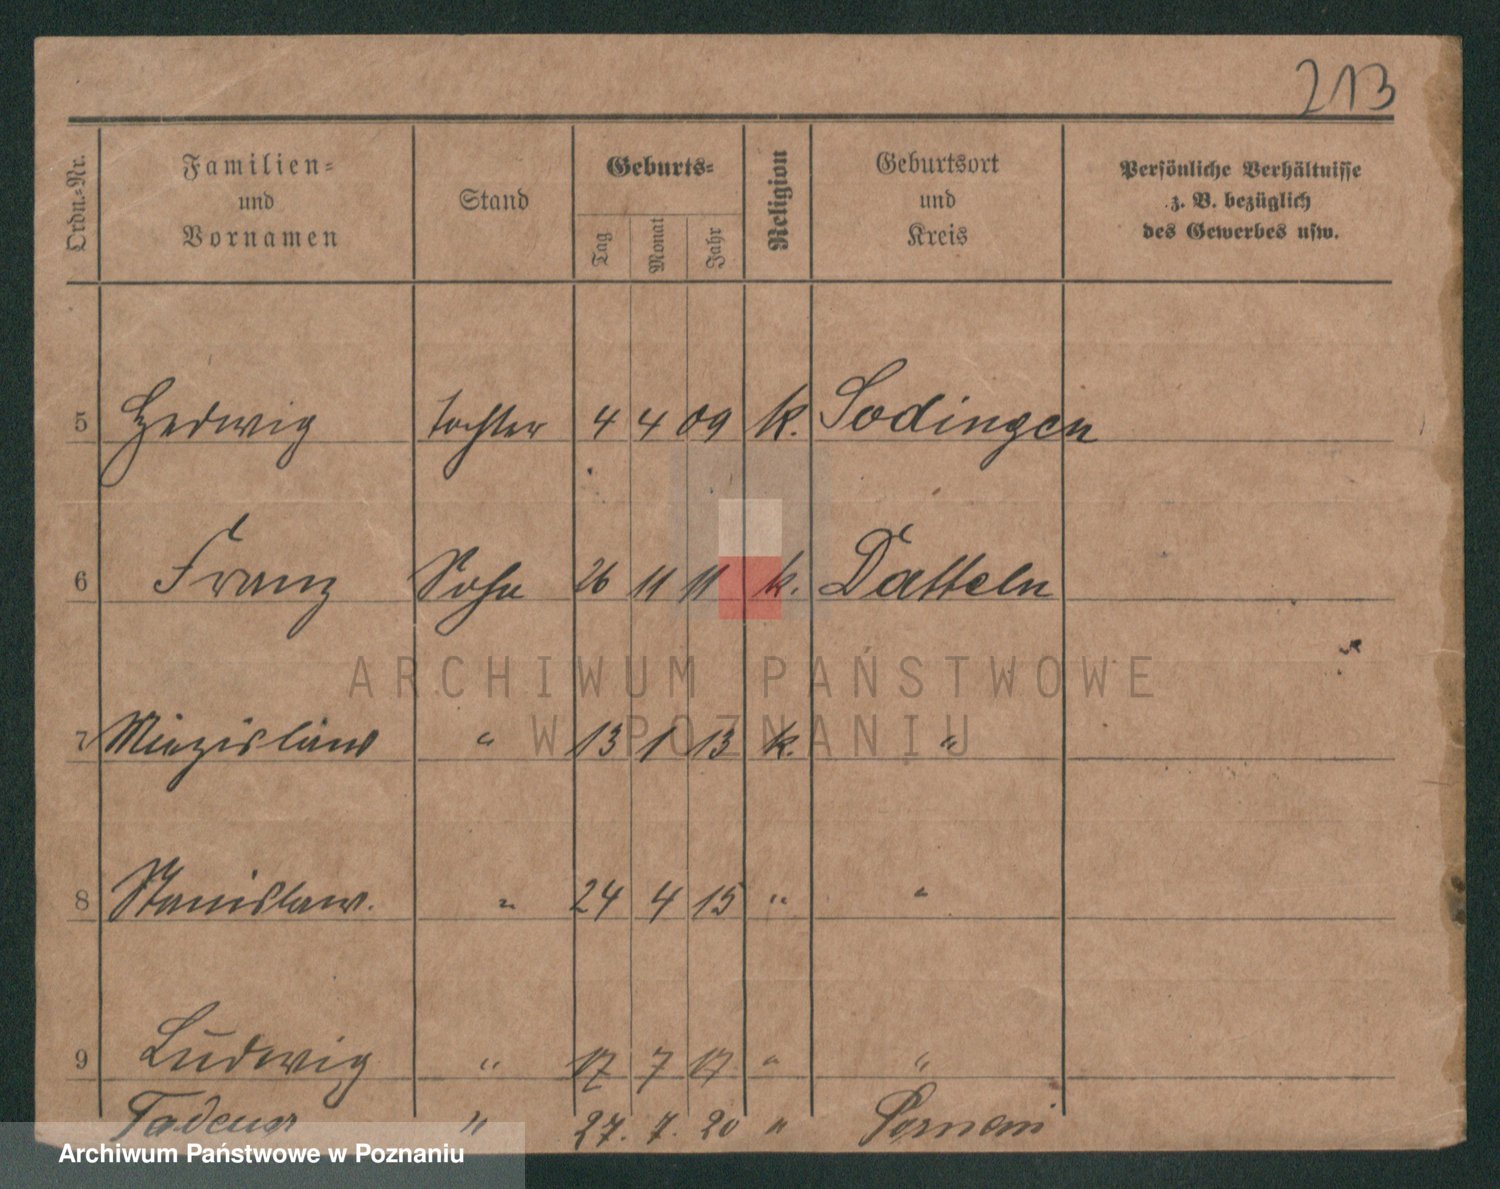 213
Ordn.-Nr.
Familien-
und
Vornamen
Stand
Geburts-
Tag
Monat
Jahr
Religion
Geburtsort
und
Kreis
Persönliche Verhältnisse
z. B. bezüglich
des Gewerbes usw.
5 Hedwig tochter 4 4 09 k. Sodingen
6 Franz Sohn 26 11 11 k. Datteln
ARCHIWUM PAŃSTWOWE
W POZNANIU
7 Miezislaus " 13 1 13 k. "
8 Stanislaw. " 24 4 15 " "
9 Ludwig " 17 7 17 " "
Tadeus " 27. 7. 20 "
Archiwum Państwowe w Poznaniu